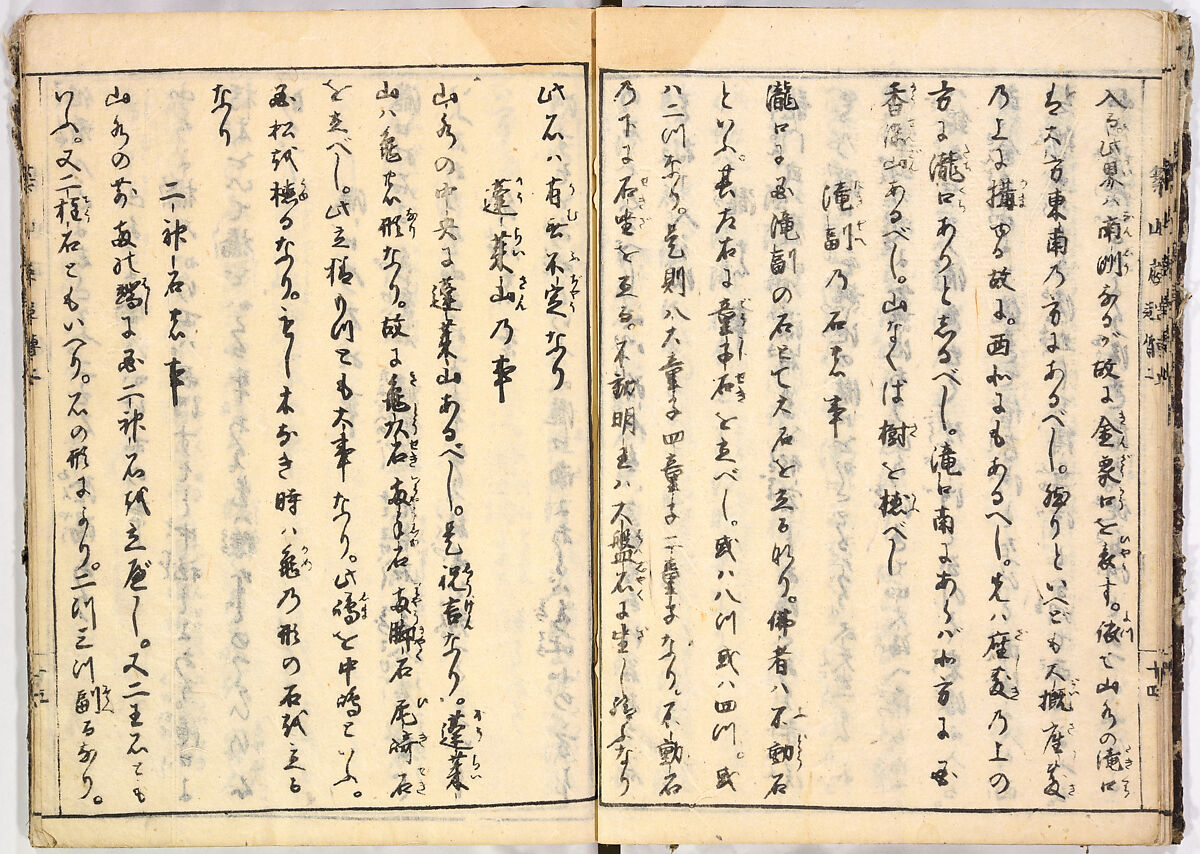 入る此界ハ南洲なるが故に金衆口を表す。依て山水の滝口
は大方東南の方にあるべし。縁りといへども大概座敷
乃上に搆ゆる故に。西北にもあるべし。先ハ座敷乃上の
方に瀧口ありと志るべし。滝口南にあらバ北方にも
香酔山あるべし。山なくば樹を植べし
滝副乃石之事
瀧口に必滝副の石とて大石を立る也。佛者ハ不動石
といふ。其左右に童子石を立べし。或ハ八川或ハ四川。或
ハ二川なり。是則八大童子四童子二童子なり。不動石
乃下に石坐を立る。不動明王ハ大盤石に坐し給ふなり
此石ハ有無不定なり
蓬莱山乃事
山水の中央に蓬莱山あるべし。是祝言なり。蓬莱
山ハ亀之形なり。故に亀頭石両手石両脚石尾崎石
を立べし。此立様何れも大事なり。此嶋を中嶋といふ。
必松を植るなり。もし木なき時ハ亀乃形の石を立る
なり
二神石之事
山水の前両の端に必二神石を立べし。又二王石とも
いふ。又二柱石ともいへり。石の形により。二川三川副るなり。